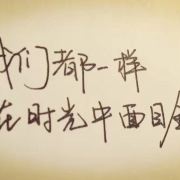 我们都一样
在时光中面目全